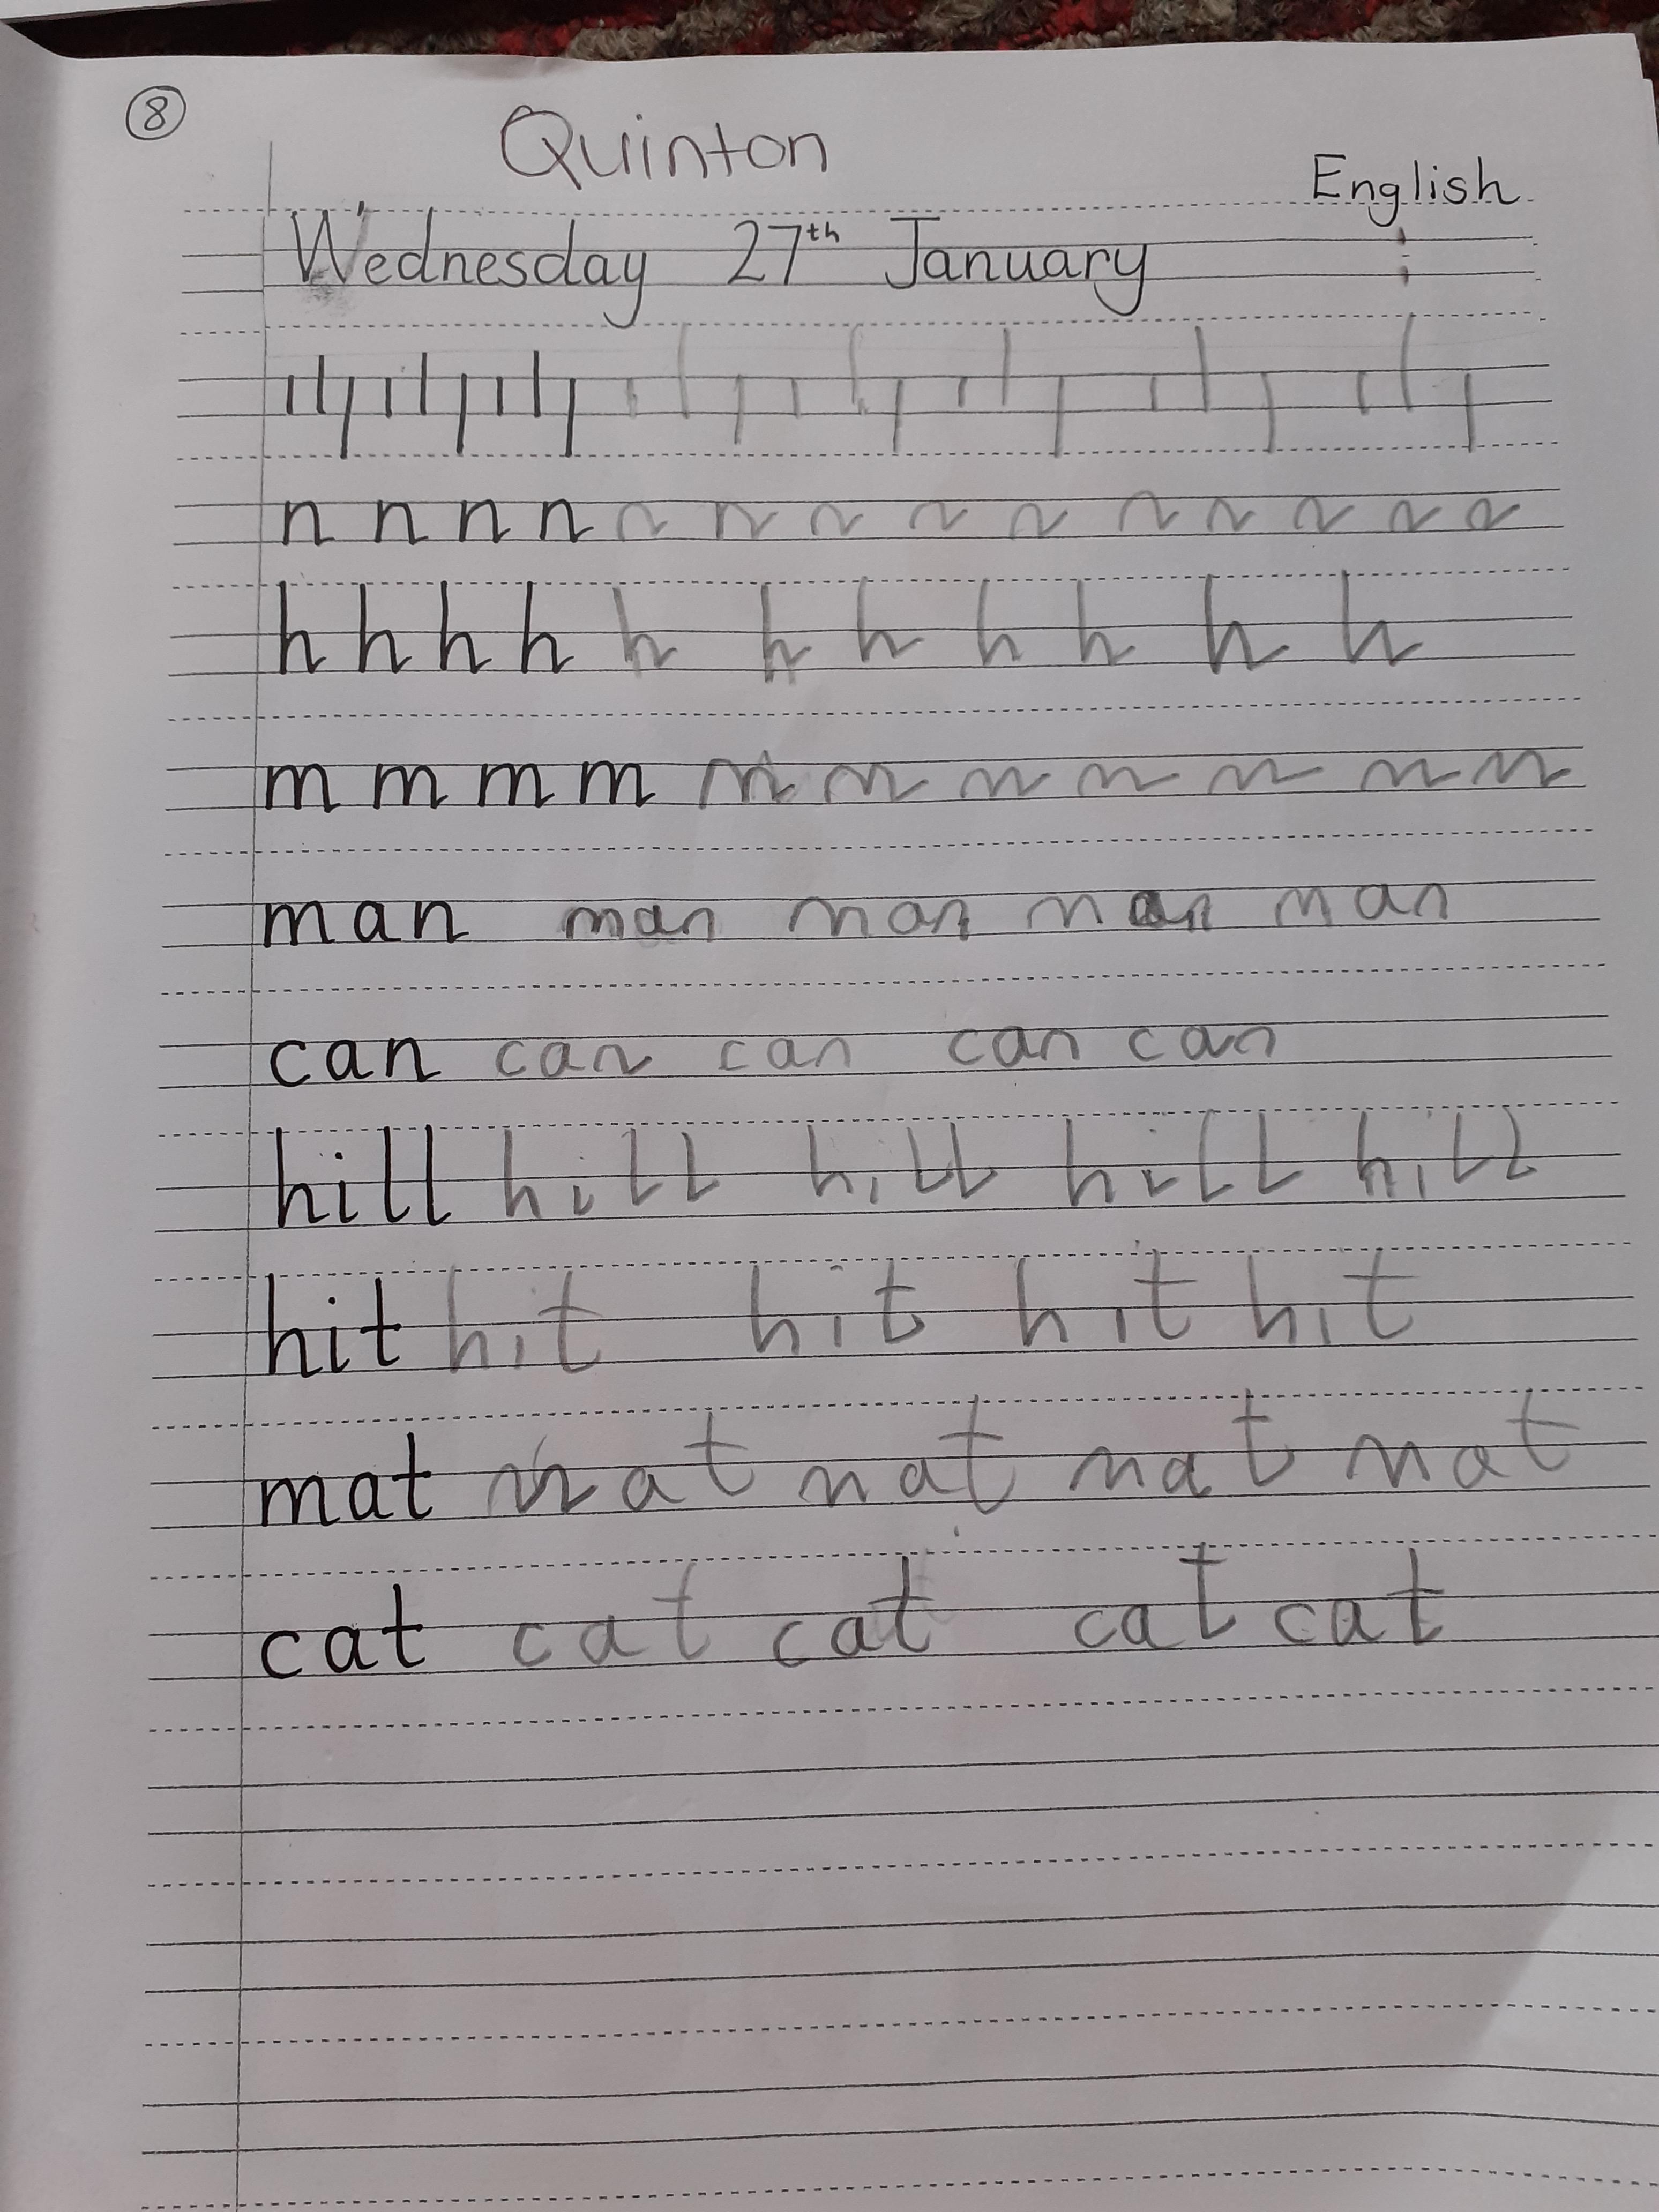 8
Quinton
English
Wednesday 27th January
n n n n n n n n n n n n n n
h h h h h h h h h h h
m m m m m m m m m m m
man man man man man
can can can can can
hill hill hill hill hill
hit hit hit hit hit
mat mat mat mat mat
cat cat cat cat cat